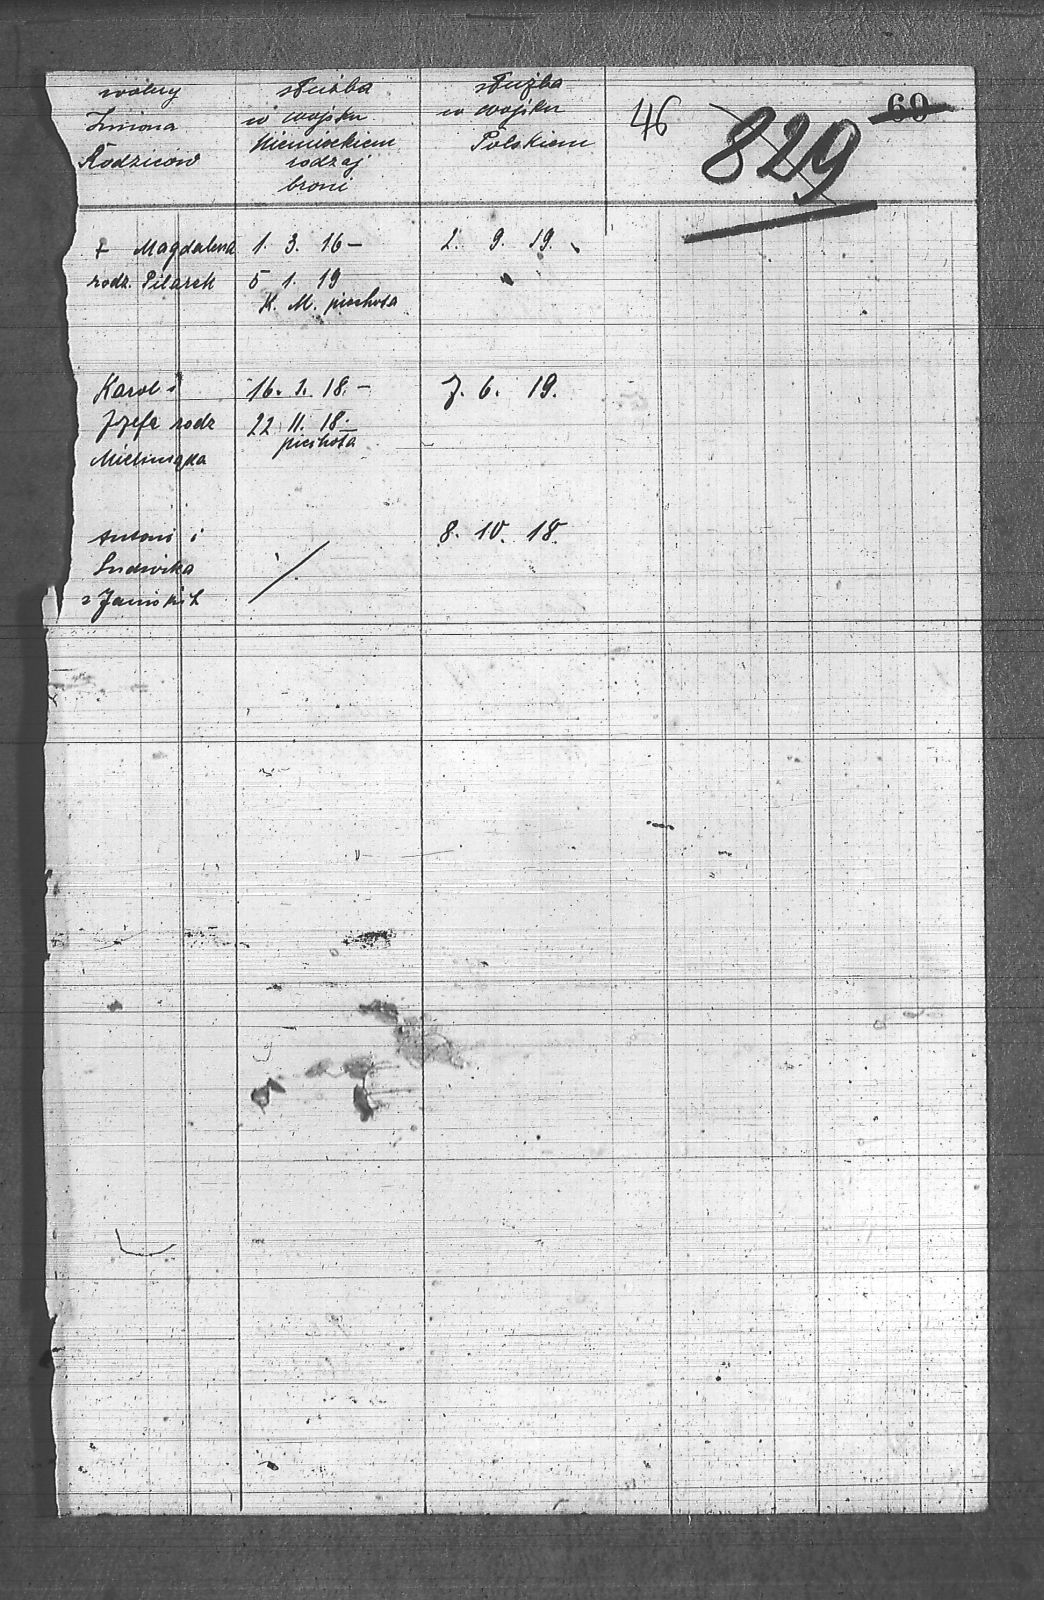 Imiona
Rodziców
służba
w wojsku
Niemieckiem
rodzaj
broni
służba
w wojsku
Polskiem
46
829
60
Magdalena
rodz. Pilarek
1. 3. 16 –
5 1. 19
K. M. piechota
2. 9. 19.
Karol i
Józefa rodz
16. 1. 18. –
22 11. 18.
piechota
7. 6. 19.
Antoni i
Ludwika
8. 10. 18.